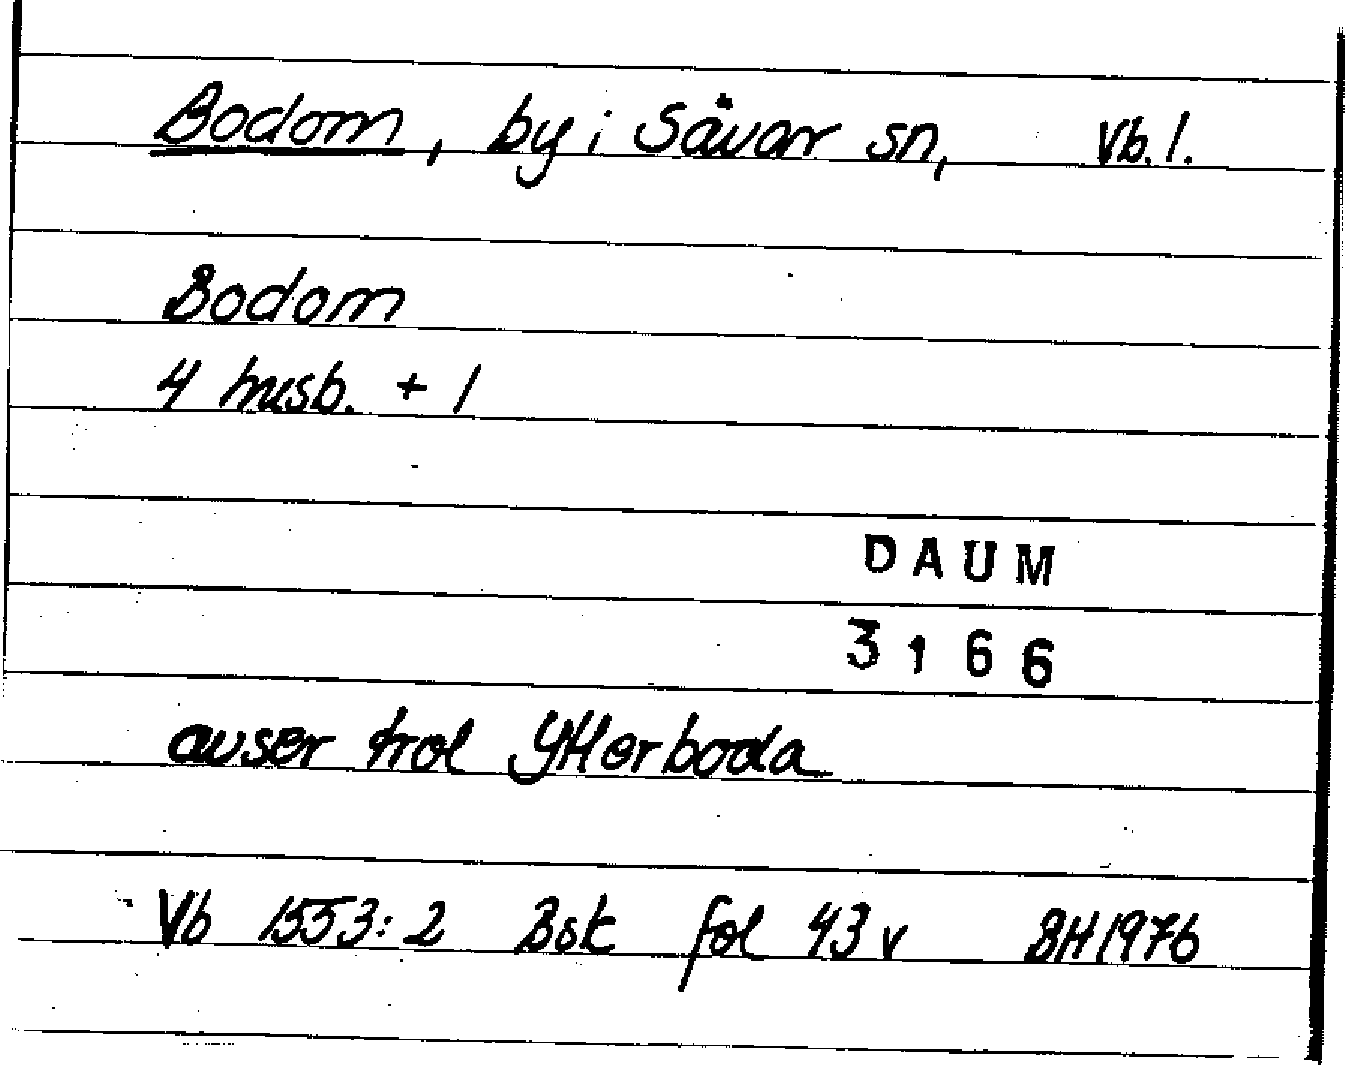 Bodom, by i Sävar sn, Vb. l.
Bodom
4 husb. + 1
DAUM
3166
avser trol Ytterboda
Vb 1553:2 Bsk fol 43 v BH1976